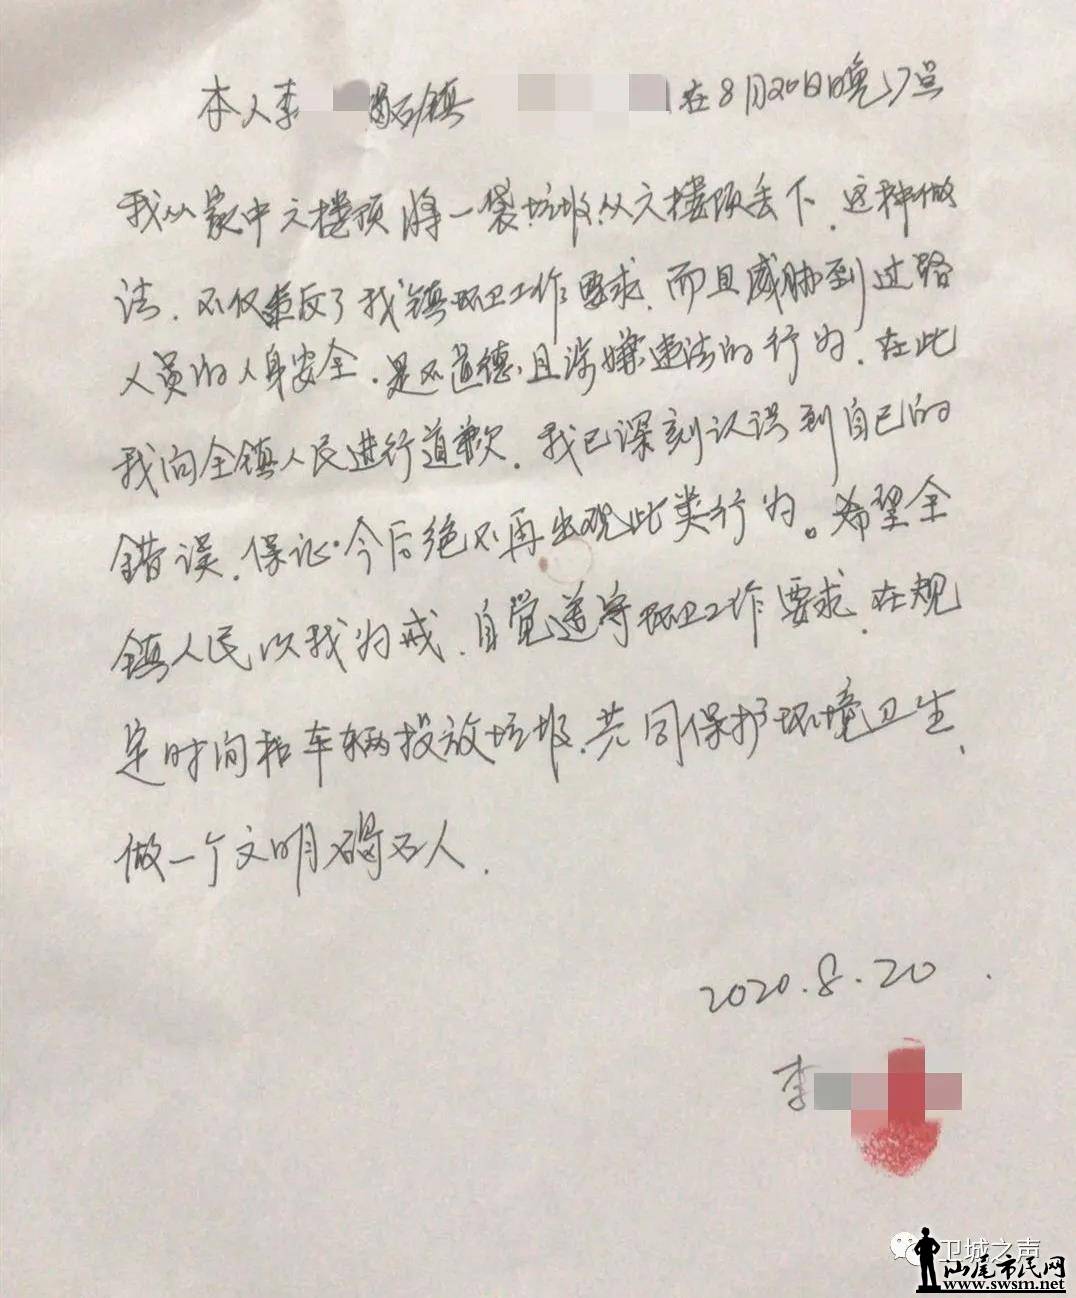 本人李 碣石镇 在8月20日晚17点
我从家中六楼顶将一袋垃圾从六楼顶丢下.这种做
法.不仅违反了我镇环卫工作要求.而且威胁到过路
人员的人身安全.是不道德.且涉嫌违法的行为.在此
我向全镇人民进行道歉.我已深刻认识到自己的
错误.保证.今后绝不再出现此类行为。希望全
镇人民以我为戒.自觉遵守环卫工作要求.在规
定时间和车辆投放垃圾.共同保护环境卫生、
做一个文明碣石人.
2020.8.20
李
卫城之声
汕尾市民网
www.swsm.net